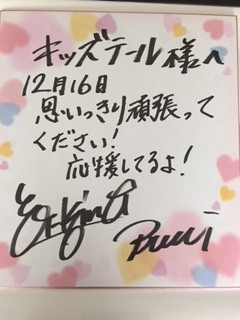 キッズテール様へ
12月16日
思いっきり頑張って
ください!
応援してるよ!